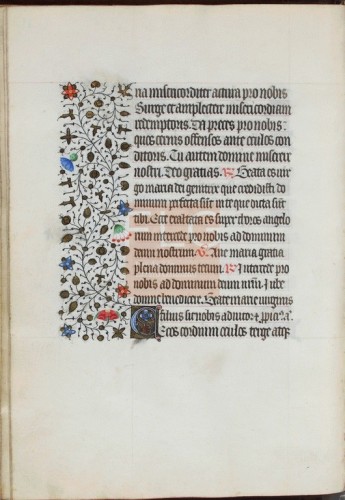 na misericorditer actura pro nobis
Surge et amplectere misericordiam
redemptoris. Da preces pro nobis:
quos cernis offensos ante oculos con
ditoris. Tu autem domine miserere
nostri. Deo gratias. R Beata es vir
go maria dei genitrix que credidisti do
mino perfecta sunt in te que dicta sunt
tibi. Ecce exaltata es super choros angelo
rum intercede pro nobis ad dominum
deum nostrum. V. Ave maria gratia
plena dominus tecum. R Intercede pro
nobis ad dominum deum nrm. Iube
domne benedicere. Sancte marie virginis
filius sit nobis adiutor et ppici9. a.
Cecos cordium oculos terge atq